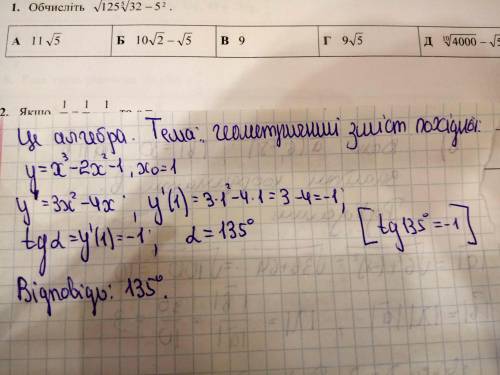 1. Обчисліть √125 ⁵√32 − 5².
А 11√5 Б 10√2 − √5 В 9 Г 9√5 Д ¹⁰√4000 − √5
2. Якщо
Це алгебра. Тема: геометричний зміст похідної.
y=x³-2x²-1, x₀=1
y'=3x²-4x; y'(1)=3·1²-4·1=3-4=-1;
tgα=y'(1)=-1; α=135° [tg135°=-1]
Відповідь: 135°.